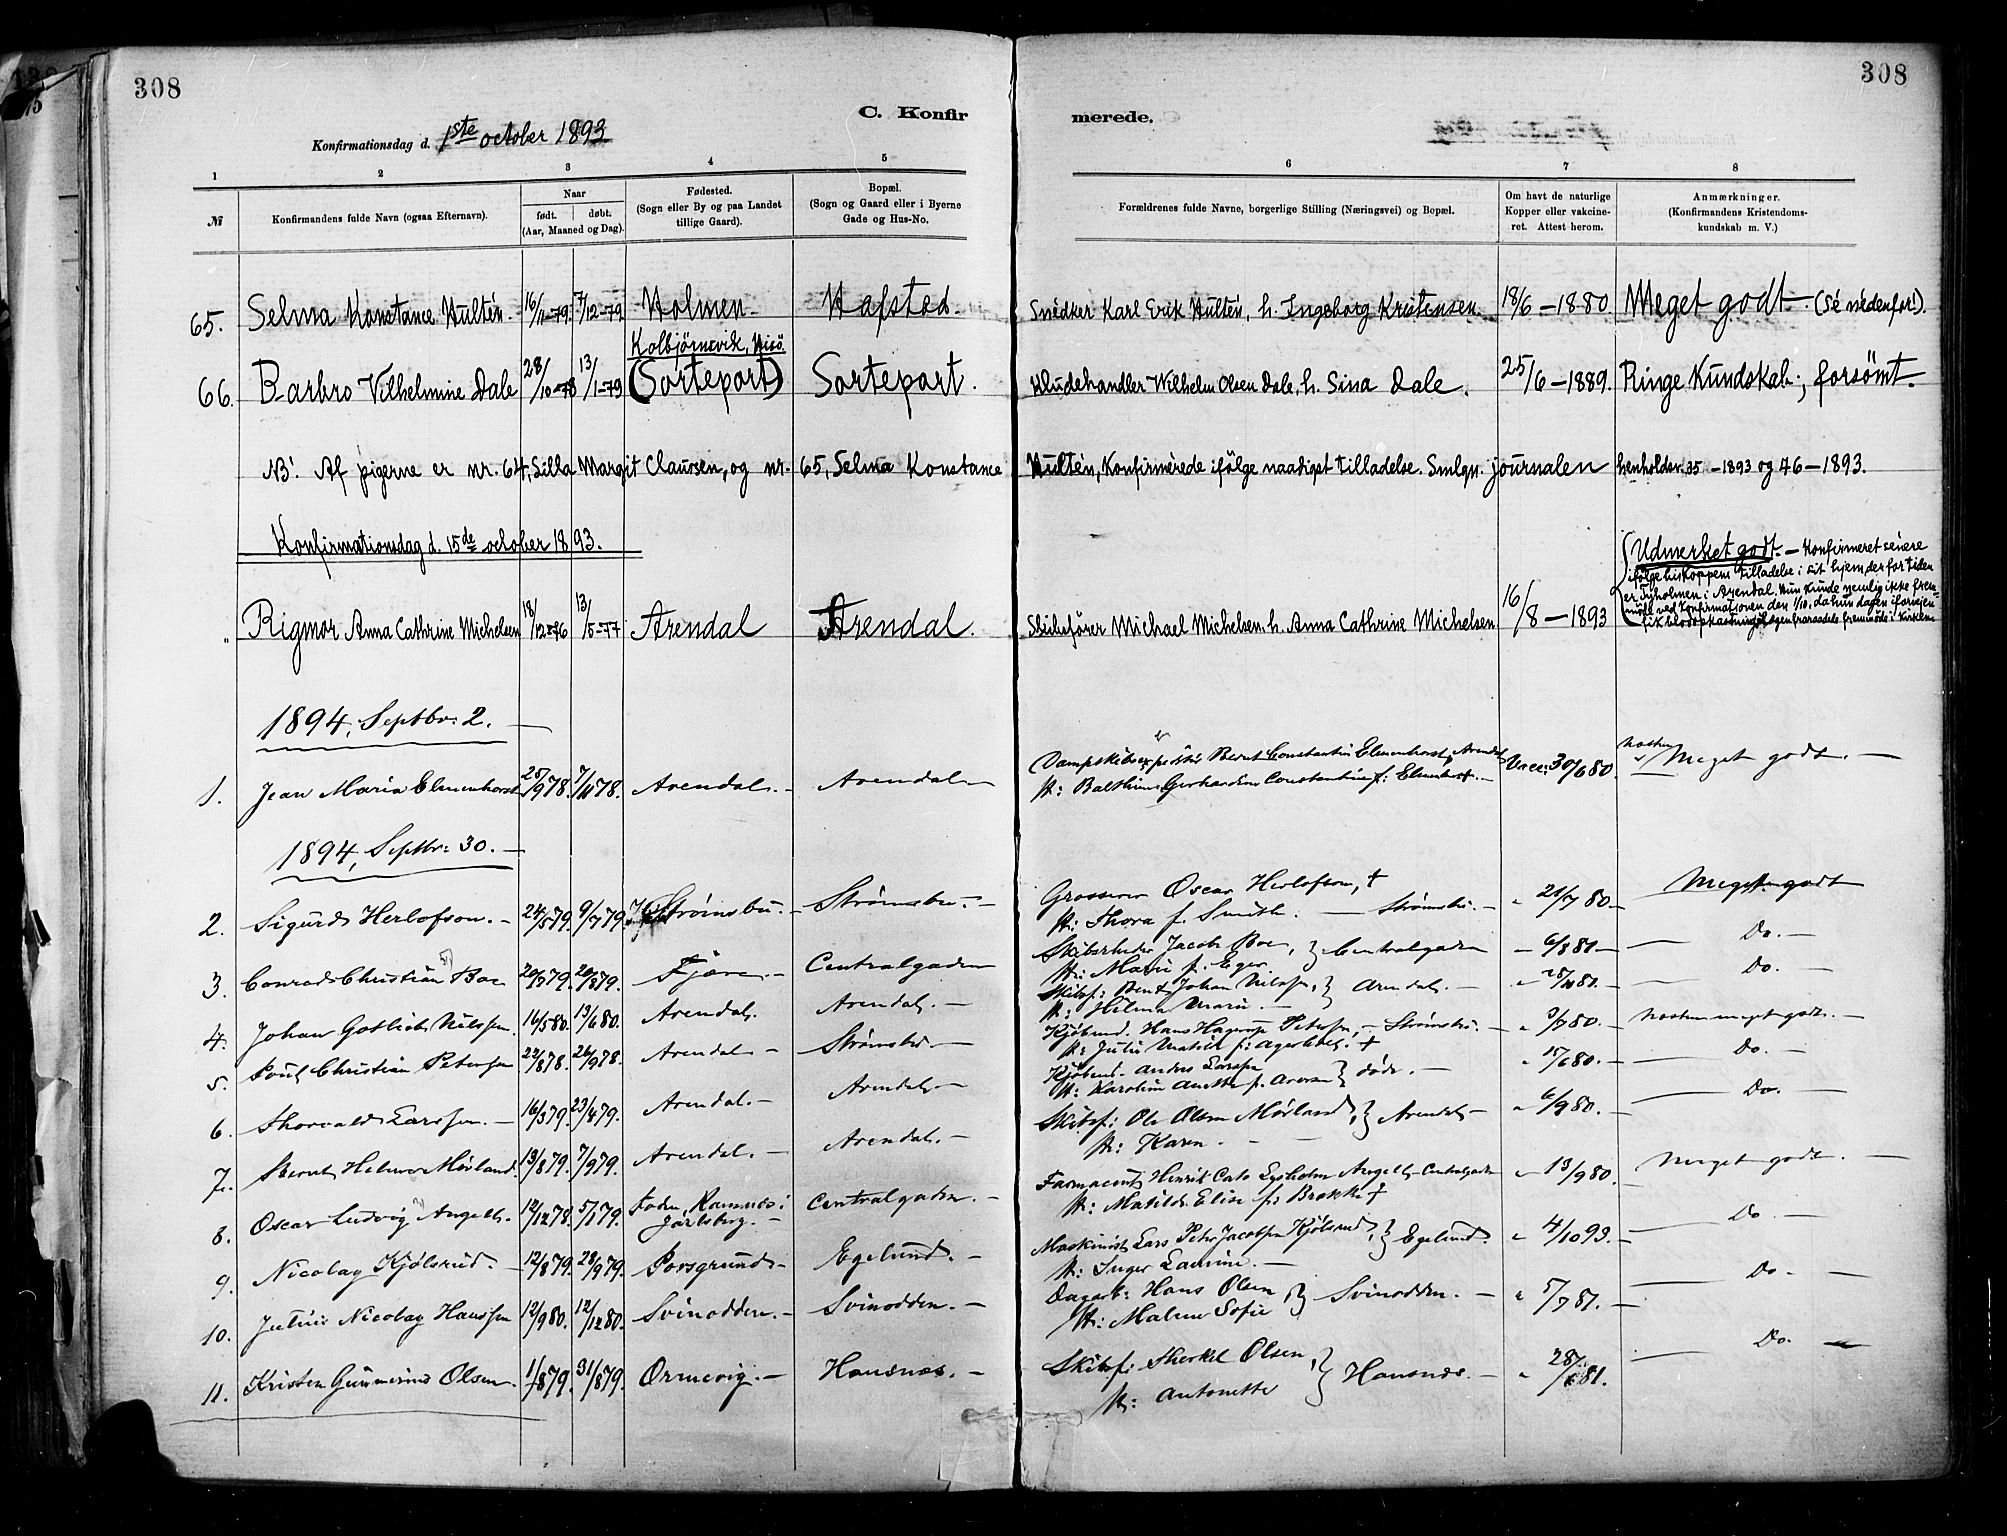 308
308
C. Konfir merede.
Konfirmationsdag d. 1ste october 1893
1 2 3 4 5 6 7 8
№
Konfirmandens fulde Navn (ogsaa Efternavn).
Naar
født. døbt.
(Aar, Maaned og Dag).
Fødested.
(Sogn eller By og paa Landet
tillige Gaard).
Bopæl.
(Sogn og Gaard eller i Byerne
Gade og Hus-No.
Forældrenes fulde Navne, borgerlige Stilling (Næringsvei) og Bopæl.
Om havt de naturlige
Kopper eller vakcine-
ret. Attest herom.
Anmærkninger.
(Konfirmandens Kristendoms-
kundskab m. V.)
65. Selma Konstance Hultén. 16/11-79. 7/12-79 Holmen. Hafsted. Snedker Karl Erik Hultén, h. Ingeborg Kristensen. 18/6-1880 Meget godt. (Sé nédenfor!).
Kolbjørnsvik, Hisö.
66. Barbro Vilhelmine Dale 28/10-78 13/1-79 (Sorteport) Sorteport. Kludehandler Wilhelm Olsen Dale, h. Sina Dale. 25/6-1889. Ringe Kundskab; forsömt.
NB! Af pigerne er nr. 64, Silla Margit Claussen, og nr. 65, Selma Konstance Hultén, Konfirmérede ifölge naadigst tilladelse. Smlgn. journalen henholdsv. 35-1893 og 46-1893.
Konfirmationsdag d. 15de october 1893.
" Rigmor Anna Cathrine Michelsen 18/12-76 13/5-77 Arendal Arendal. Skibsförer Michael Michelsen, h. Anna Cathrine Michelsen 16/8-1893
Udmerket godt. - Konfirmeret senere
ifölge biskoppens tilladelse i sit hjem, der for tiden
er Tyholmen i Arendal. Hun kunde nemlig ikke frem-
möde ved Konfirmationen den 1/10, da hun dagen iforvejen
fik blodopkastning og lægen fraraadede fremmöde i kirken.
1894, Septbr: 2.
1. Jean Maria Elmenhorst 25/9 78. 7/11 78. Arendal. Arendal
Dampskibsexpeditør Berent Constantin Elmenhorst, Arendal
H: Balthine Gerhardine Constantine f: Elmenhorst. Vacc: 30/6 80. næsten Meget godt.
1894, Septbr: 30.
2. Sigurd Herlofson. 24/5 79. 9/7 79. Strømsbu. Strømsbu.
Grosserer Oscar Herlofson, †
H: Thora f. Smith. Strømsbu. 21/7 80. Meget godt
3. Conrad Christian Boe 20/3 79. 20/8 79. Fjære. Centralgaden
Skibsrheder Jacob Boe, } Centralgaden
H: Marie f. Eger 6/8 81 Do.
4. Johan Gotlieb Nilssen. 16/5 80. 13/6 80. Arendal. Arendal.
Skibsf: Bent Johan Nilssen, } Arendal.
H: Hilma Marie. 28/10 80. Do.
5. Poul Christian Peterssen 22/8 78. 26/9 78. Arendal. Strømsbu.
Kjøbmd. Hans Hagerup Peterssen, Strømsbu.
3/7 80. næsten meget godt.
6. Thorvald Larssen. 16/3 79. 23/4 79. Arendal. Arendal.
Kjøbmd. Anders Larssen } døde.
H: Karoline Anette f. 15/6 80. Do.
7. Bernt Helmer Mørland. 13/8 79. 7/9 79. Arendal. Arendal.
Skibsf: Ole Olsen Mørland, } Arendal
H: Karen. 6/9 80. Do.
8. Oscar Ludvig Angell. 12/12 78. 5/1 79. Foden, Ramnes i Jarlsberg. Centralgaden.
Farmaceut Henrik Cato Lysholm Angell, Centralgaden
H: Matilde Elise f: Brække † 13/9 80. Meget godt.
9. Nicolay Kjølsrud. 12/8 79. 28/9 79. Porsgrund. Egelund.
Maskinist Lars Peter Jacobsen Kjølsrud, } Egelund.
H: Inger Laurine. 4/10 93. Do
10. Julius Nicolay Hanssen 12/9 80. 12/12 80. Svinodden. Svinodden.
Dagarb: Hans Olsen } Svinodden.
H: Malene Sofie 5/7 81. Do.
11. Kristen Gunnerius Olsen. 1/7 879. 31/8 79. Ormevig. Hansnæs.
Skibsf: Therkel Olsen, } Hansnæs.
H: Antonette 28/6 81. Do.